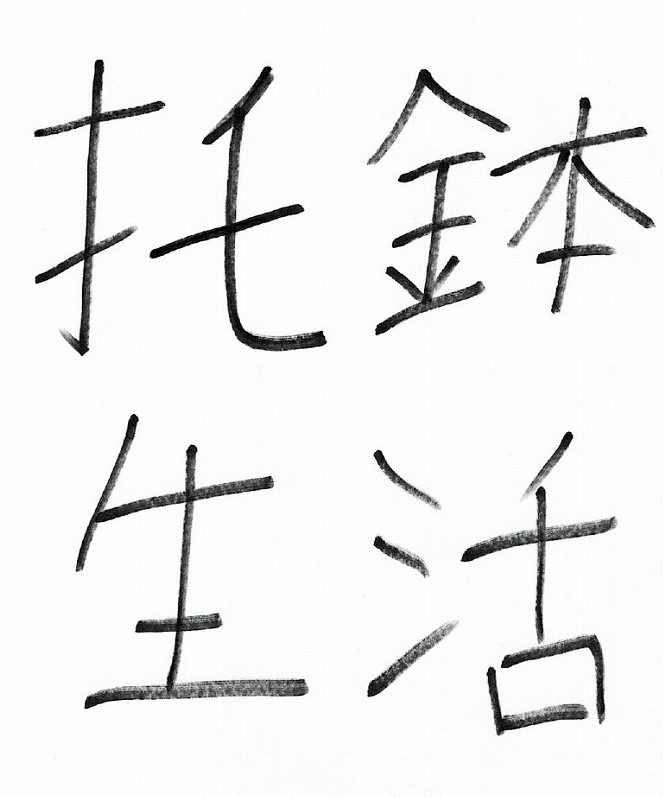 托鉢
生活